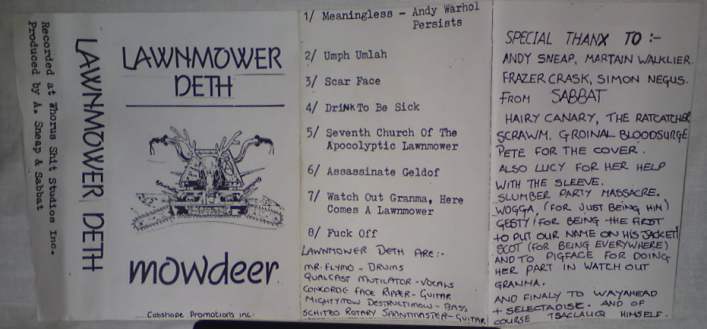 Recorded at Whorus Shit Studios Inc.
Produced by A. Sneap & Sabbat
LAWNMOWER DETH
LAWNMOWER
DETH
mowdeer
Cobshope Promotions Inc.
1/ Meaningless - Andy Warhol
Persists
2/ Umph Umlah
3/ Scar Face
4/ Drink To Be Sick
5/ Seventh Church Of The
Apocolyptic Lawnmower
6/ Assassinate Geldof
7/ Watch Out Granma, Here
Comes A Lawnmower
8/ Fuck Off
LAWNMOWER DETH ARE:-
MR FLYMO - DRUMS
QUALCAST MUTILATOR - VOCALS
CONCORDE FACE RIPPER - GUITAR
MIGHTYMOW DESTRUCTIMOW - BASS
SCHITZO ROTARY SPRINTMASTER - GUITAR
SPECIAL THANX TO :-
ANDY SNEAP, MARTAIN WALKLIER.
FRAZER CRASK, SIMON NEGUS.
FROM SABBAT
HAIRY CANARY, THE RATCATCHER
SCRAWM, GROINAL BLOODSURGE
PETE FOR THE COVER.
ALSO LUCY FOR HER HELP
WITH THE SLEEVE.
SLUMBER PARTY MASSACRE,
WOGGA, (FOR JUST BEING HIM)
GESTY (FOR BEING THE FIRST
TO PUT OUR NAME ON HIS JACKET)
SCOT (FOR BEING EVERYWHERE)
AND TO PIGFACE FOR DOING
HER PART IN WATCH OUT
GRANMA.
AND FINALY TO WAYAHEAD
+ SELECTADISK. AND OF
COURSE TSACLAUQ HIMSELF.